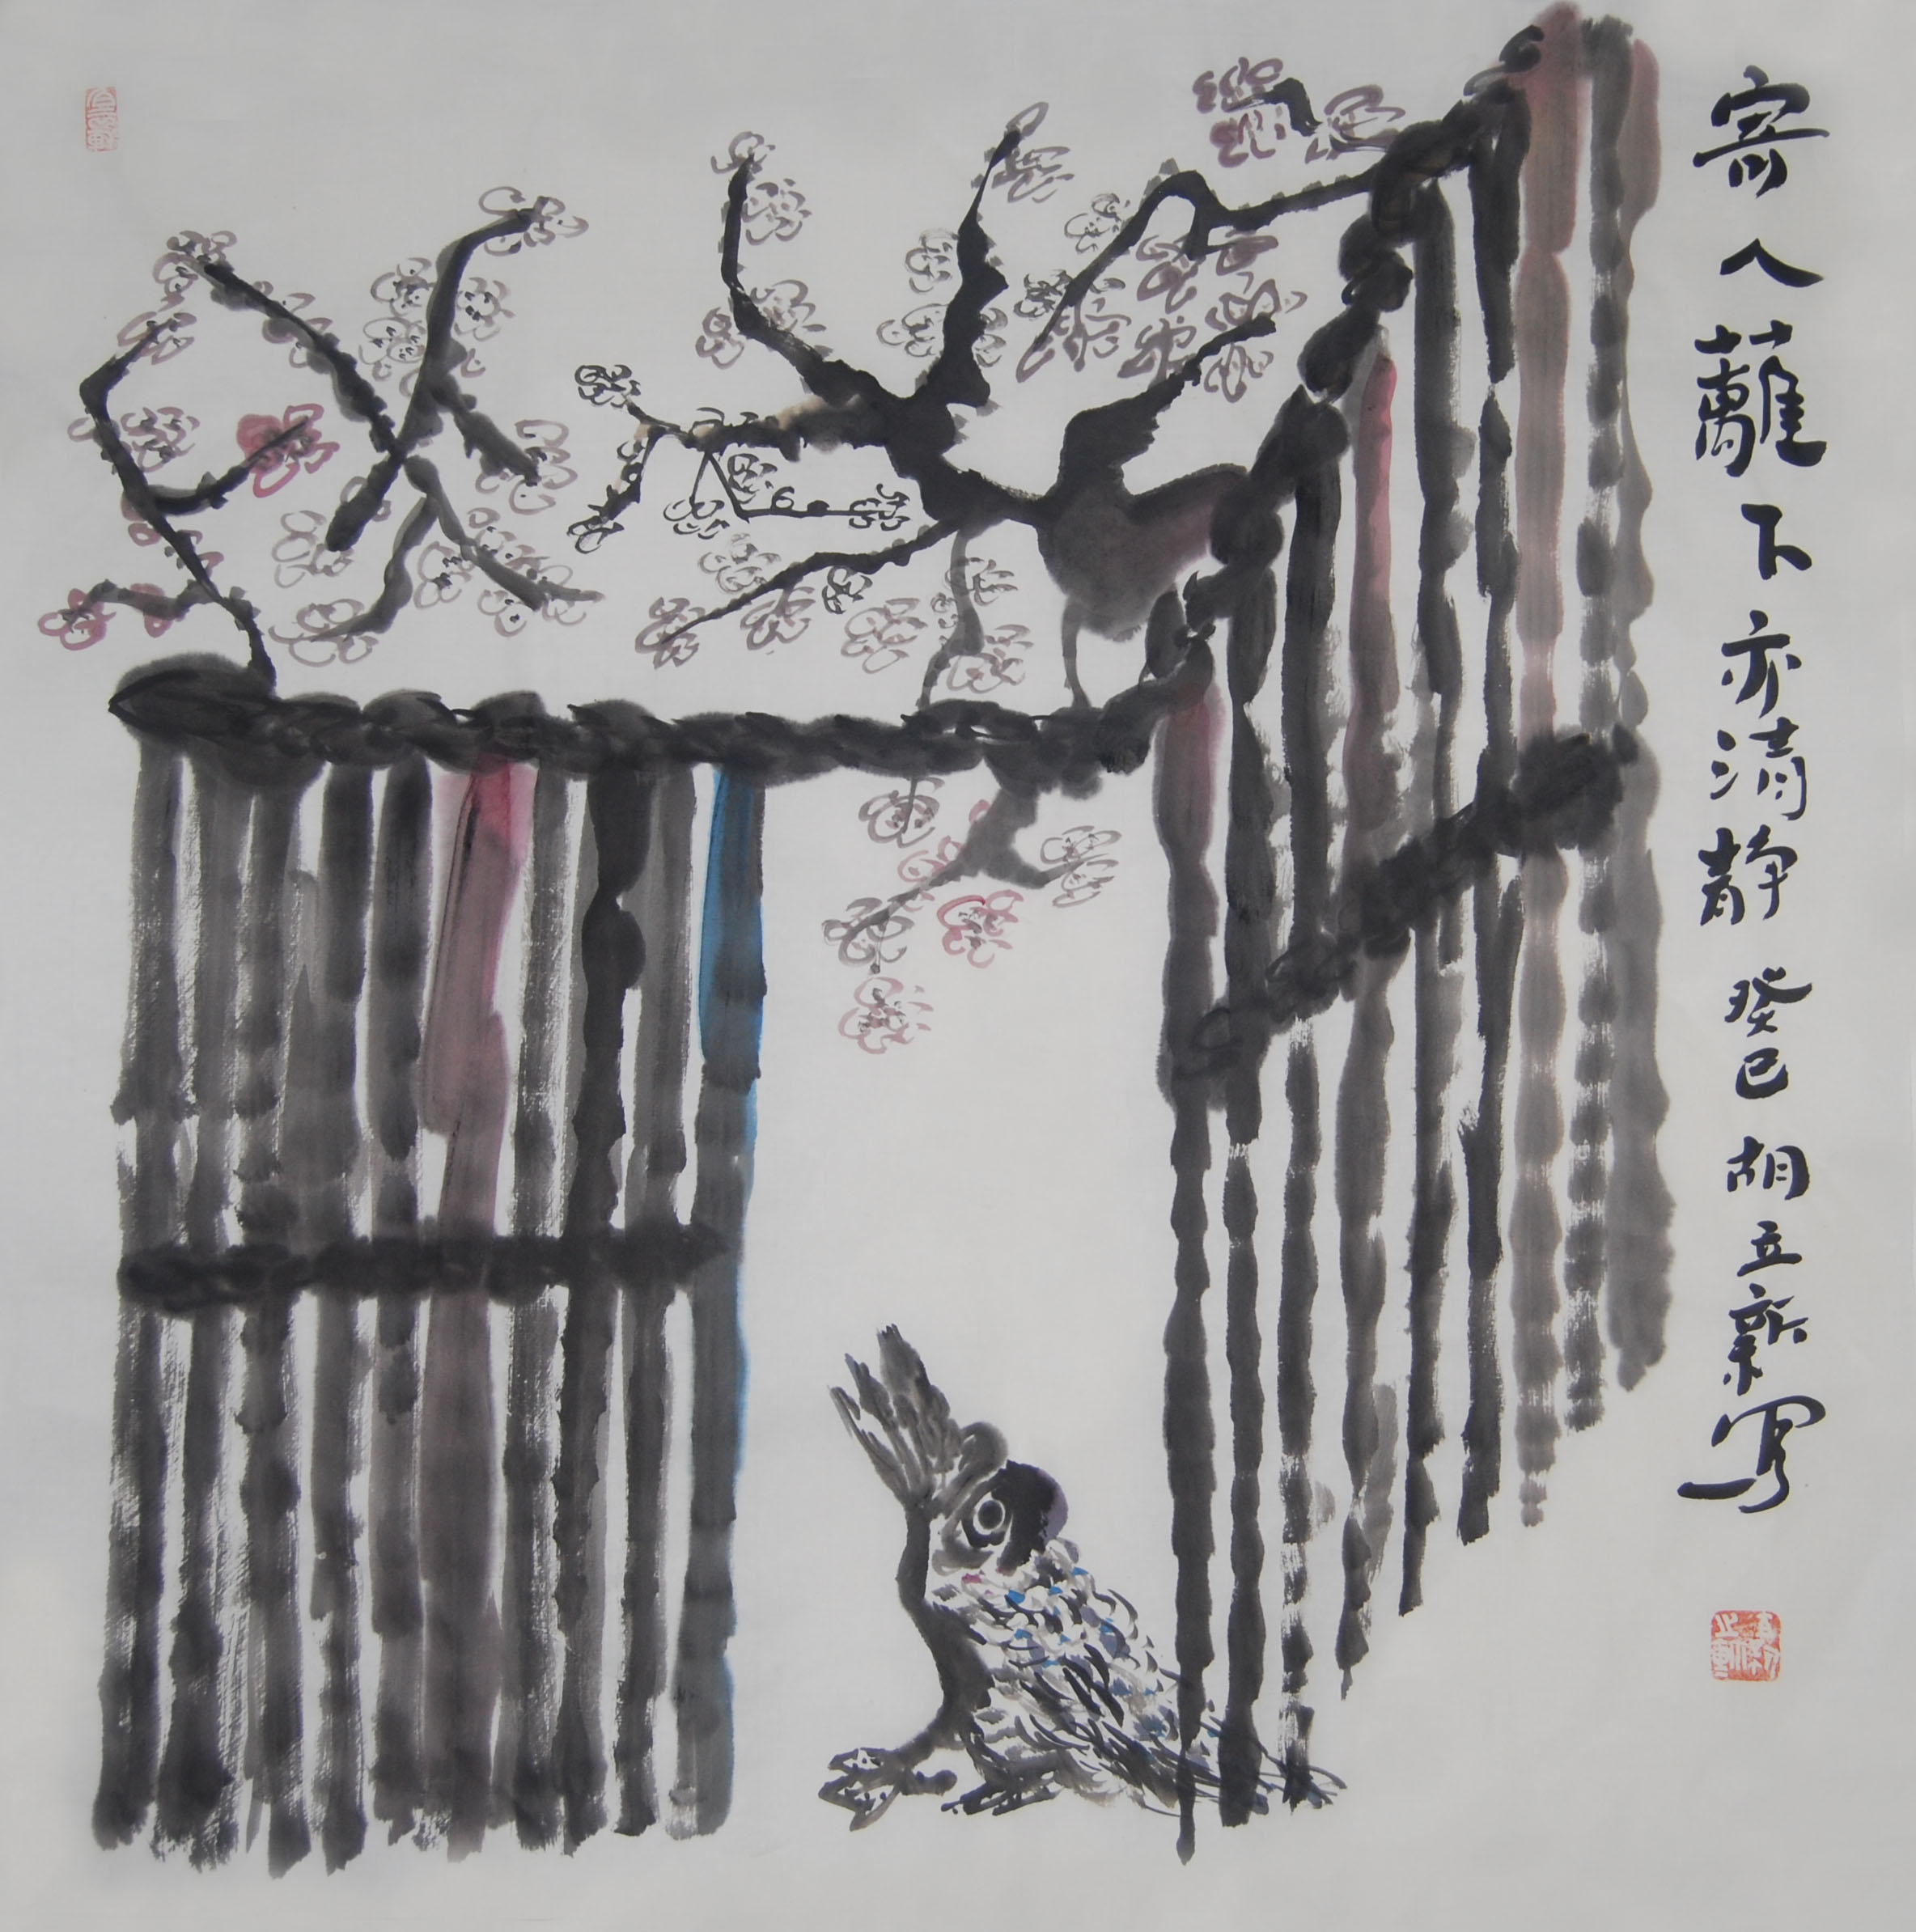 寄人蘺下亦清静 癸巳 胡立新写